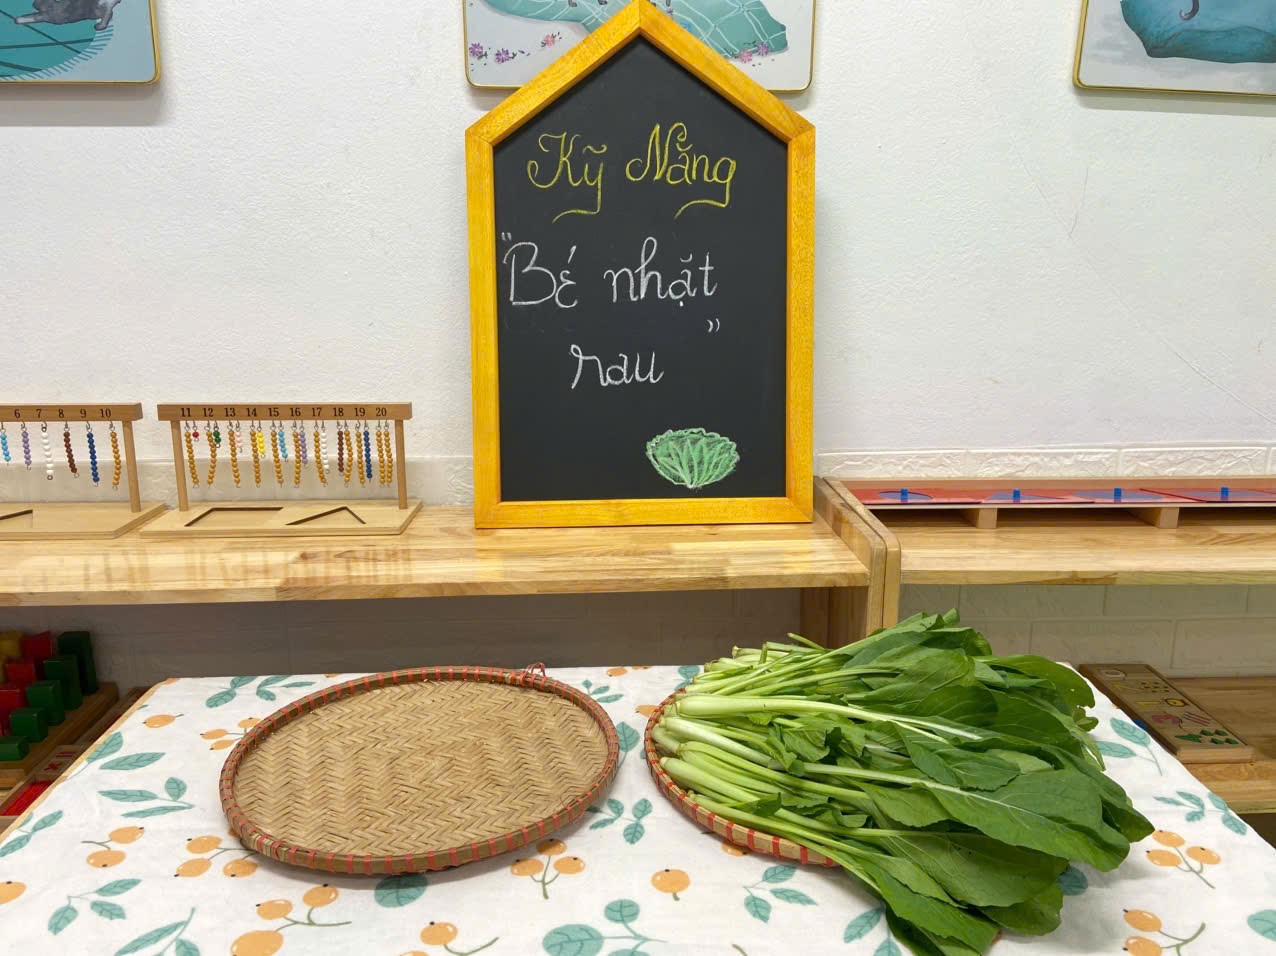 Kỹ Năng
"Bé nhặt
rau"
6 7 8 9 10
11 12 13 14 15 16 17 18 19 20